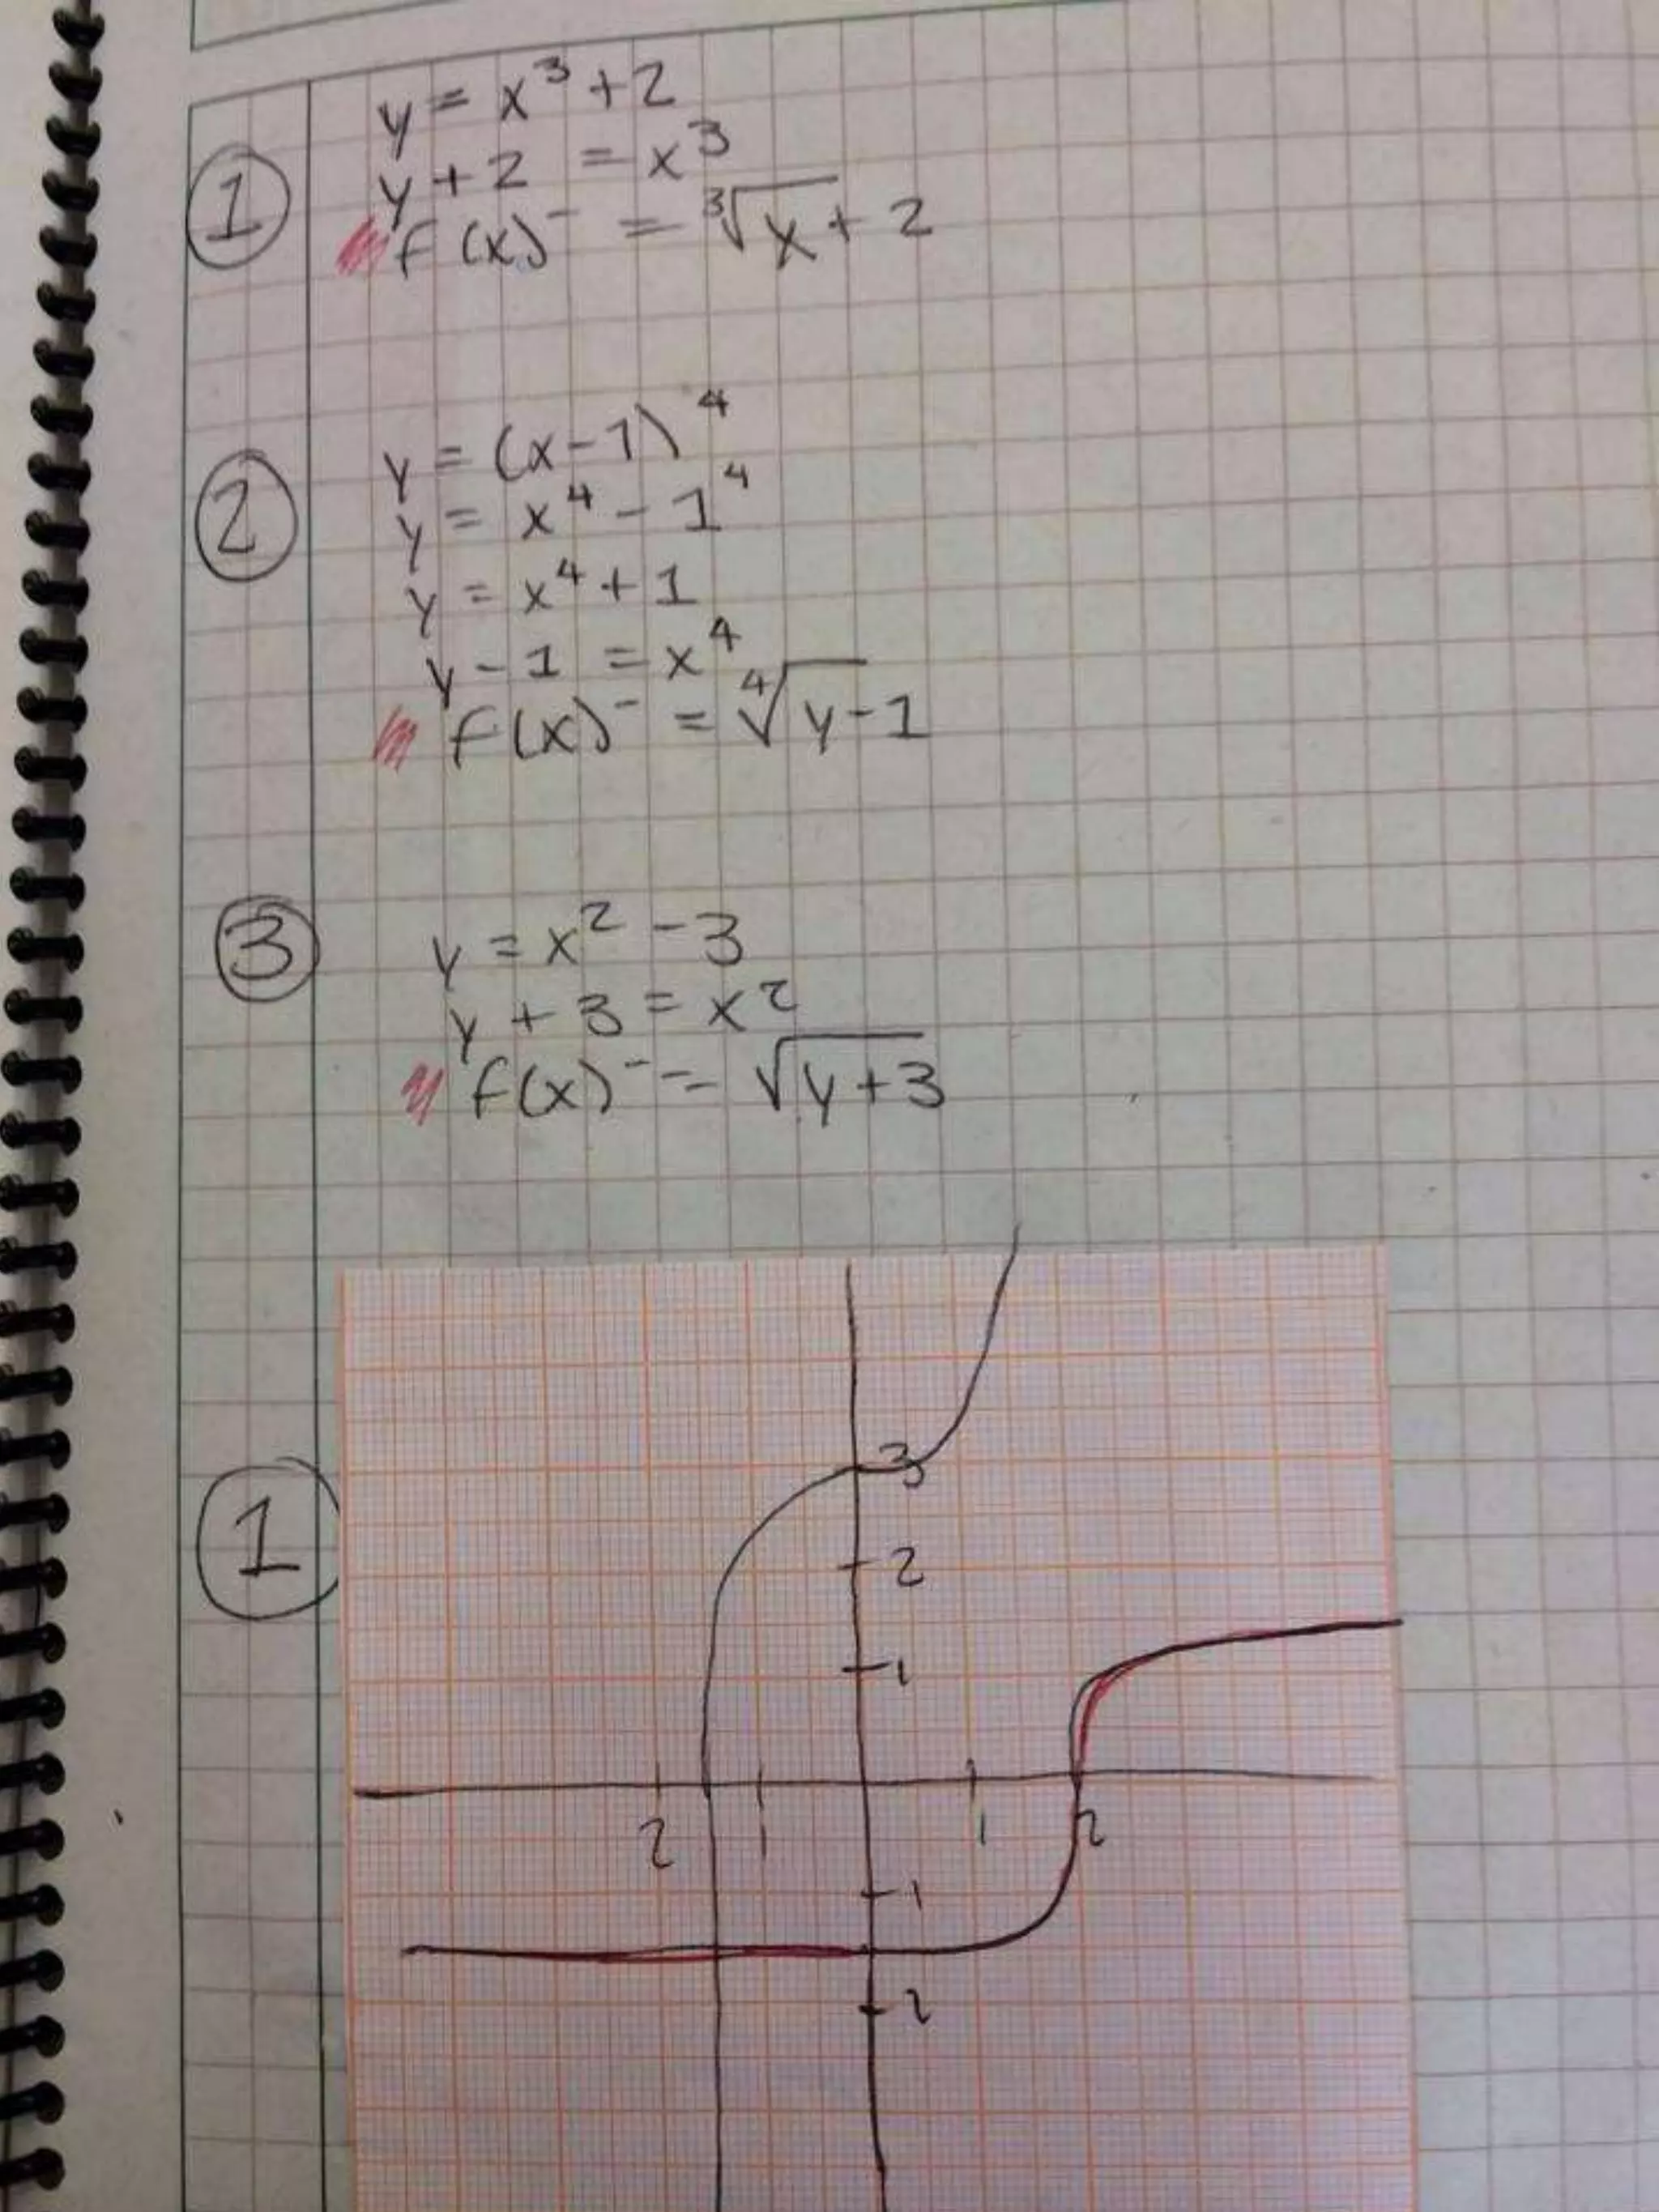 y = x³ + 2
① y + 2 = x³
f(x)⁻ = ∛x + 2
y = (x-1)⁴
② y = x⁴ - 1⁴
y = x⁴ + 1
y - 1 = x⁴
f(x)⁻ = ∜y-1
③ y = x² - 3
y + 3 = x²
f(x)⁻ = √y+3
①
3
2
1
2 1 1 2
1
2